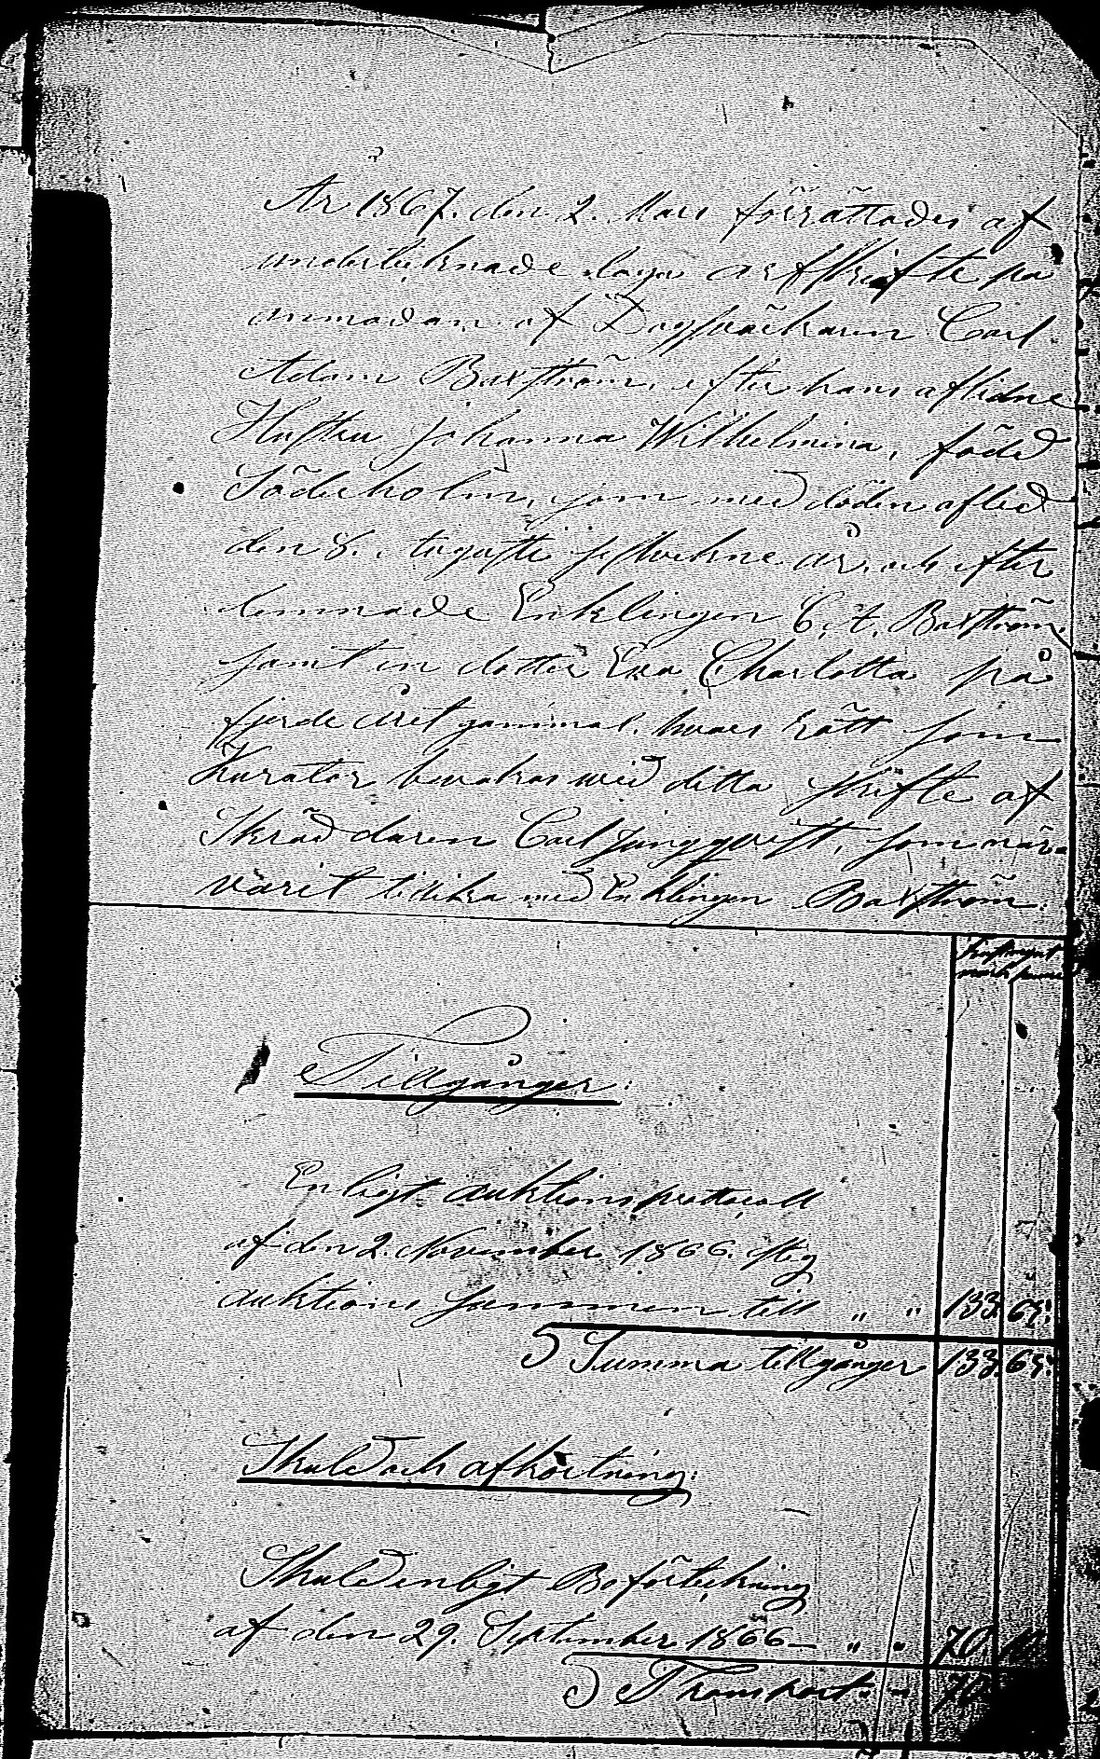 År 1867. den 2. Mars förrättades af
undertecknade laga arfskifte på
anmodan af Dagsverkaren Carl
Adam Baxström, efter hans aflidne
Hustru Johanna Wilhelmina, född
Söderholm, som med döden afled
den 8. Augusti sistvekne år, och efter
lemnade Enklingen C. A. Baxström,
samt en dotter Eva Charlotta på
fjerde året gammal, hvars rätt som
Kurator bevakas wid detta skifte af
Skräddaren Carl Jungqvist, som när-
varit tillika med Enklingen Baxström.
Tillgånger:
Enligt auktionsprotocoll
af den 2. November 1866. steg
auktions summan till " " 133. 65.
S Summa tillgånger 133. 65.
Skuld och afkortning:
Skuld enligt Boförteckning
af den 29. September 1866 " " 70
S Transport " " 70